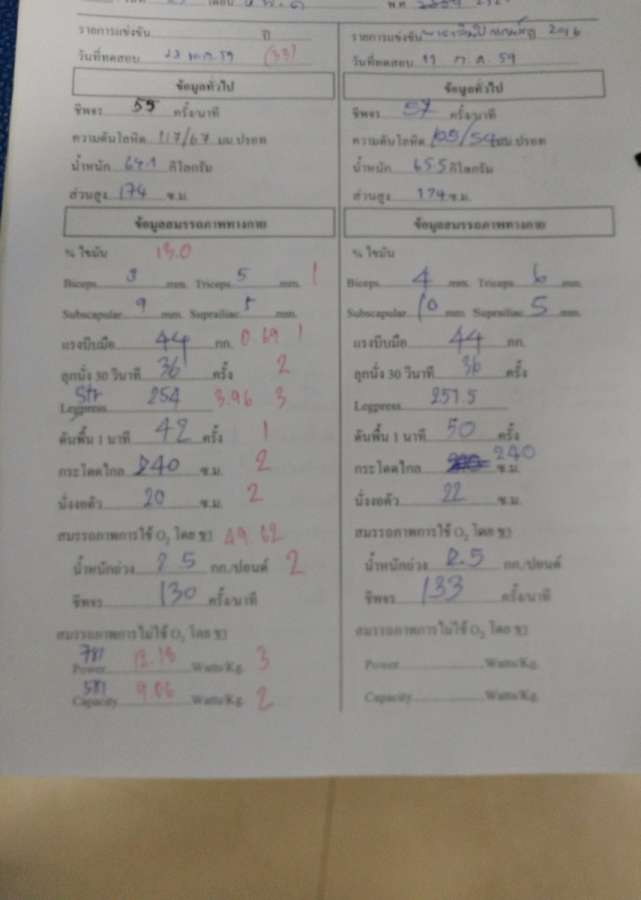 รายการแข่งขัน ปี
วันที่ทดสอบ 23 พ.ค. 59 (33)
ข้อมูลทั่วไป
ชีพจร 55 ครั้ง/นาที
ความดันโลหิต 117/67 มม.ปรอท
น้ำหนัก 64.1 กิโลกรัม
ส่วนสูง 174 ซ.ม.
ข้อมูลสมรรถภาพทางกาย
% ไขมัน 13.0
Biceps 3 mm. Triceps 5 mm. 1
Subscapular 9 mm. Suprailiac 5 mm.
แรงบีบมือ 44 กก. 0.69 1
ลุกนั่ง 30 วินาที 36 ครั้ง 2
Str
Legpress 254 3.96 3
ดันพื้น 1 นาที 42 ครั้ง 1
กระโดดไกล 240 ซ.ม. 2
นั่งงอตัว 20 ซ.ม. 2
สมรรถภาพการใช้ O₂ โดย ขา 49.62
น้ำหนักถ่วง 2.5 กก./ปอนด์ 2
ชีพจร 130 ครั้ง/นาที
สมรรถภาพการไม่ใช้ O₂ โดย ขา
781
Power 12.18 Watts/Kg. 3
581
Capacity 9.06 Watts/Kg. 2
รายการแข่งขัน 2016
วันที่ทดสอบ ก.ค. 59
ข้อมูลทั่วไป
ชีพจร 57 ครั้ง/นาที
ความดันโลหิต 105/54 มม.ปรอท
น้ำหนัก 65.5 กิโลกรัม
ส่วนสูง 174 ซ.ม.
ข้อมูลสมรรถภาพทางกาย
% ไขมัน
Biceps 4 mm. Triceps 6 mm.
Subscapular 10 mm. Suprailiac 5 mm.
แรงบีบมือ 44 กก.
ลุกนั่ง 30 วินาที 36 ครั้ง
Legpress 257.5
ดันพื้น 1 นาที 50 ครั้ง
กระโดดไกล 240 ซ.ม.
นั่งงอตัว 22 ซ.ม.
สมรรถภาพการใช้ O₂ โดย ขา
น้ำหนักถ่วง 2.5 กก./ปอนด์
ชีพจร 133 ครั้ง/นาที
สมรรถภาพการไม่ใช้ O₂ โดย ขา
Power Watts/Kg.
Capacity Watts/Kg.